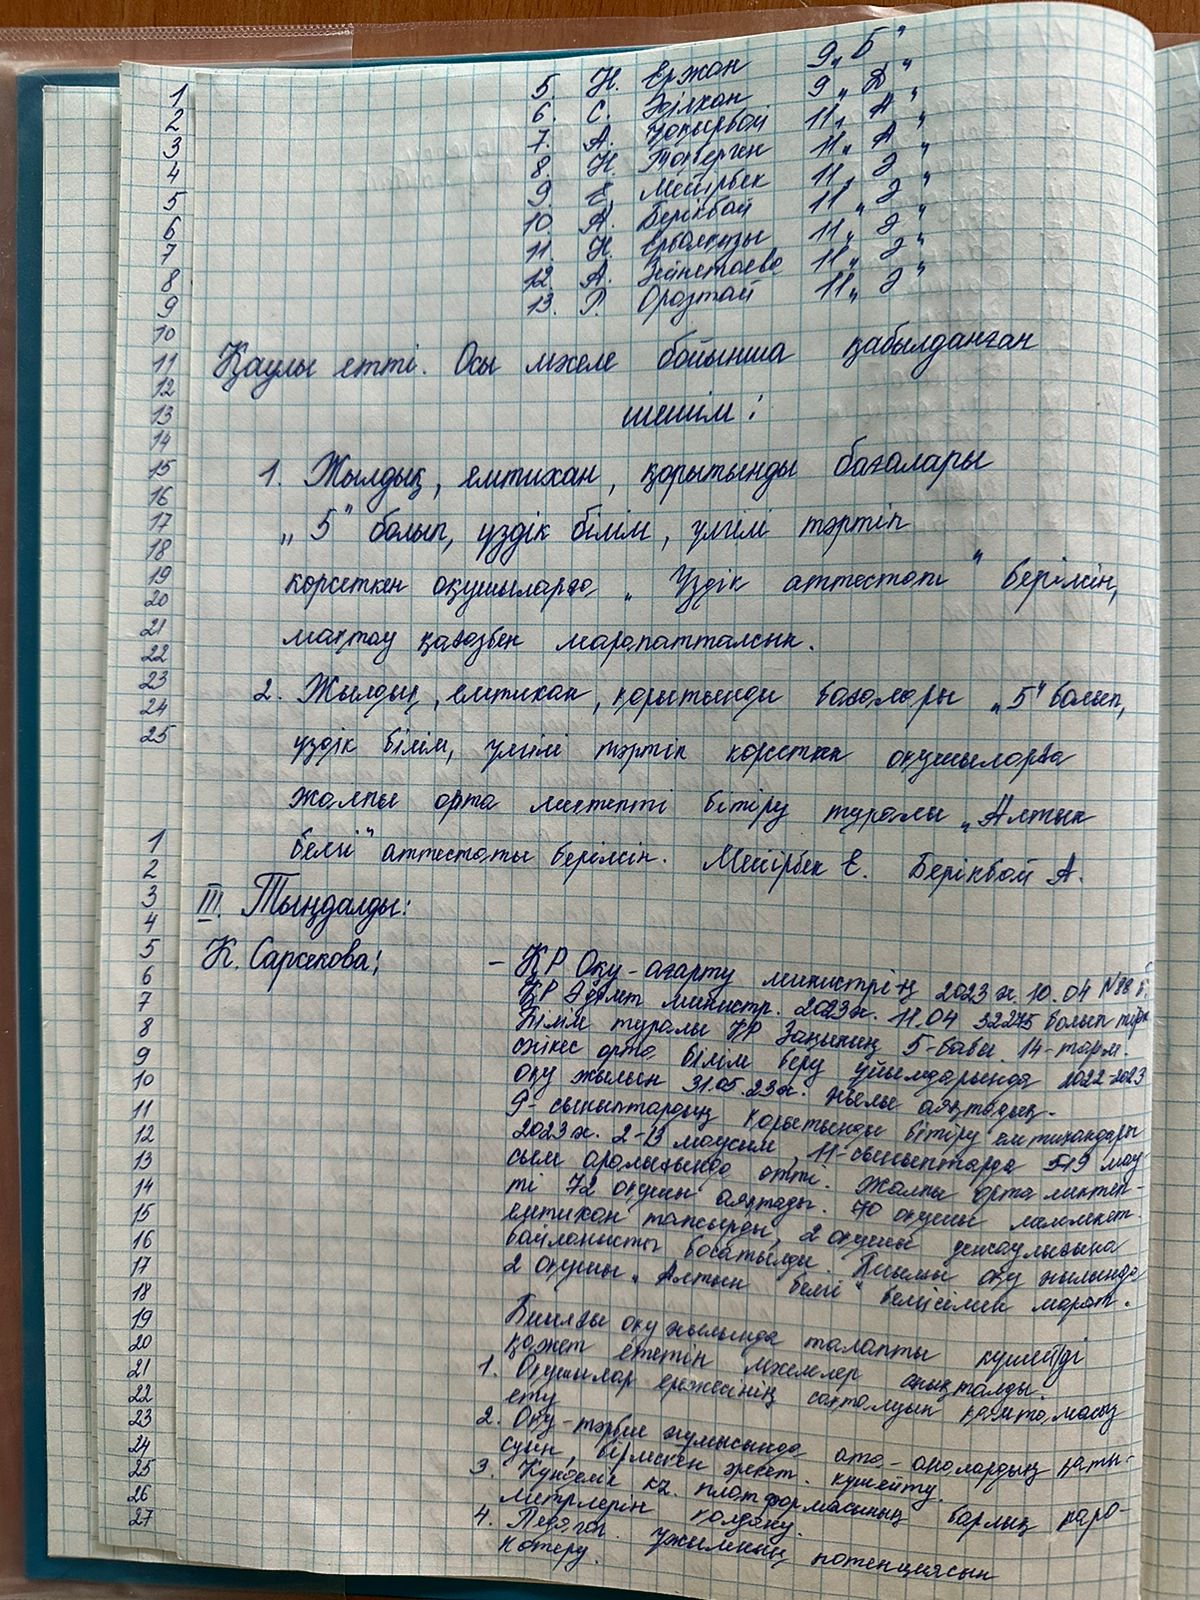 5. Н. Ержан 9 „Б"
6. С. Әділхан 9 „Д"
7. А. 11 „А"
8. Н. Төлеген 11 „А"
9. Е. Мейірбек 11 „Ә"
10. А. Берікбай 11 „Ә"
11. Н. Ерболқызы 11 „Ә"
12. А. 11 „Ә"
13. Г. Оразтай 11 „Ә"
Қаулы етті. Осы мәселе бойынша қабылданған
шешім:
1. Жылдық, емтихан, қорытынды бағалары
„5" болып, үздік білім, үлгілі тәртіп
көрсеткен оқушыларға „Үздік аттестат" берілсін,
мақтау қағазбен марапатталсын.
2. Жылдық, емтихан, қорытынды бағалары „5" болып,
үздік білім, үлгілі тәртіп көрсеткен оқушыларға
жалпы орта мектепті бітіру туралы „Алтын
белгі" аттестаты берілсін. Мейірбек Е. Берікбай А.
III. Тыңдалды:
К. Сарсекова: – ҚР Оқу-ағарту министрі-ң 2023 ж. 10.04 №88 б.
ҚР Әділет министр. 2023ж. 11.04 32275 болып тірк
Білім туралы ҚР Заңының 5-бабы. 14-тарм.
сәйкес орта білім беру ұйымдарында 2022-2023
оқу жылын 31.05.23ж. аяқтадық.
9-сыныптардың қорытынды бітіру емтихандары
2023 ж. 2-13 маусым, 11-сыныптарда 5-19 мау-
сым аралығында өтті. Жалпы орта мектеп-
ті 72 оқушы аяқтады. 70 оқушы мемлекет.
емтихан тапсырды, 2 оқушы денсаулығына
байланысты босатылды. Биылғы оқу жылында
2 оқушы „Алтын белгі" белгісімен марап.
Биылғы оқу жылында талапты күшейтуді
қажет ететін мәселелер анықталды.
1. Оқушылар ережесінің сақталуын қамтамасыз
ету
2. Оқу-тәрбие жұмысында ата-аналардың қаты-
суын, бірлескен әрекет. күшейту.
3. Күнделік кz. платформасының барлық пара-
метрлерін қолдану.
4. Педагог. ұжымның потенциясын
көтеру.
1
2
3
4
5
6
7
8
9
10
11
12
13
14
15
16
17
18
19
20
21
22
23
24
25
1
2
3
4
5
6
7
8
9
10
11
12
13
14
15
16
17
18
19
20
21
22
23
24
25
26
27